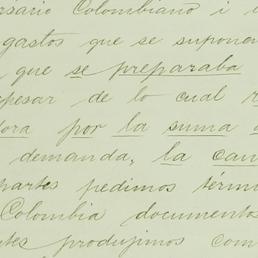 rsario Colombiano i e
gastos que se supone
que se preparaba
pesar de lo cual
dora por la suma
demanda, la can
partes pedimos térm
Colombia documentos
tes produjimos com